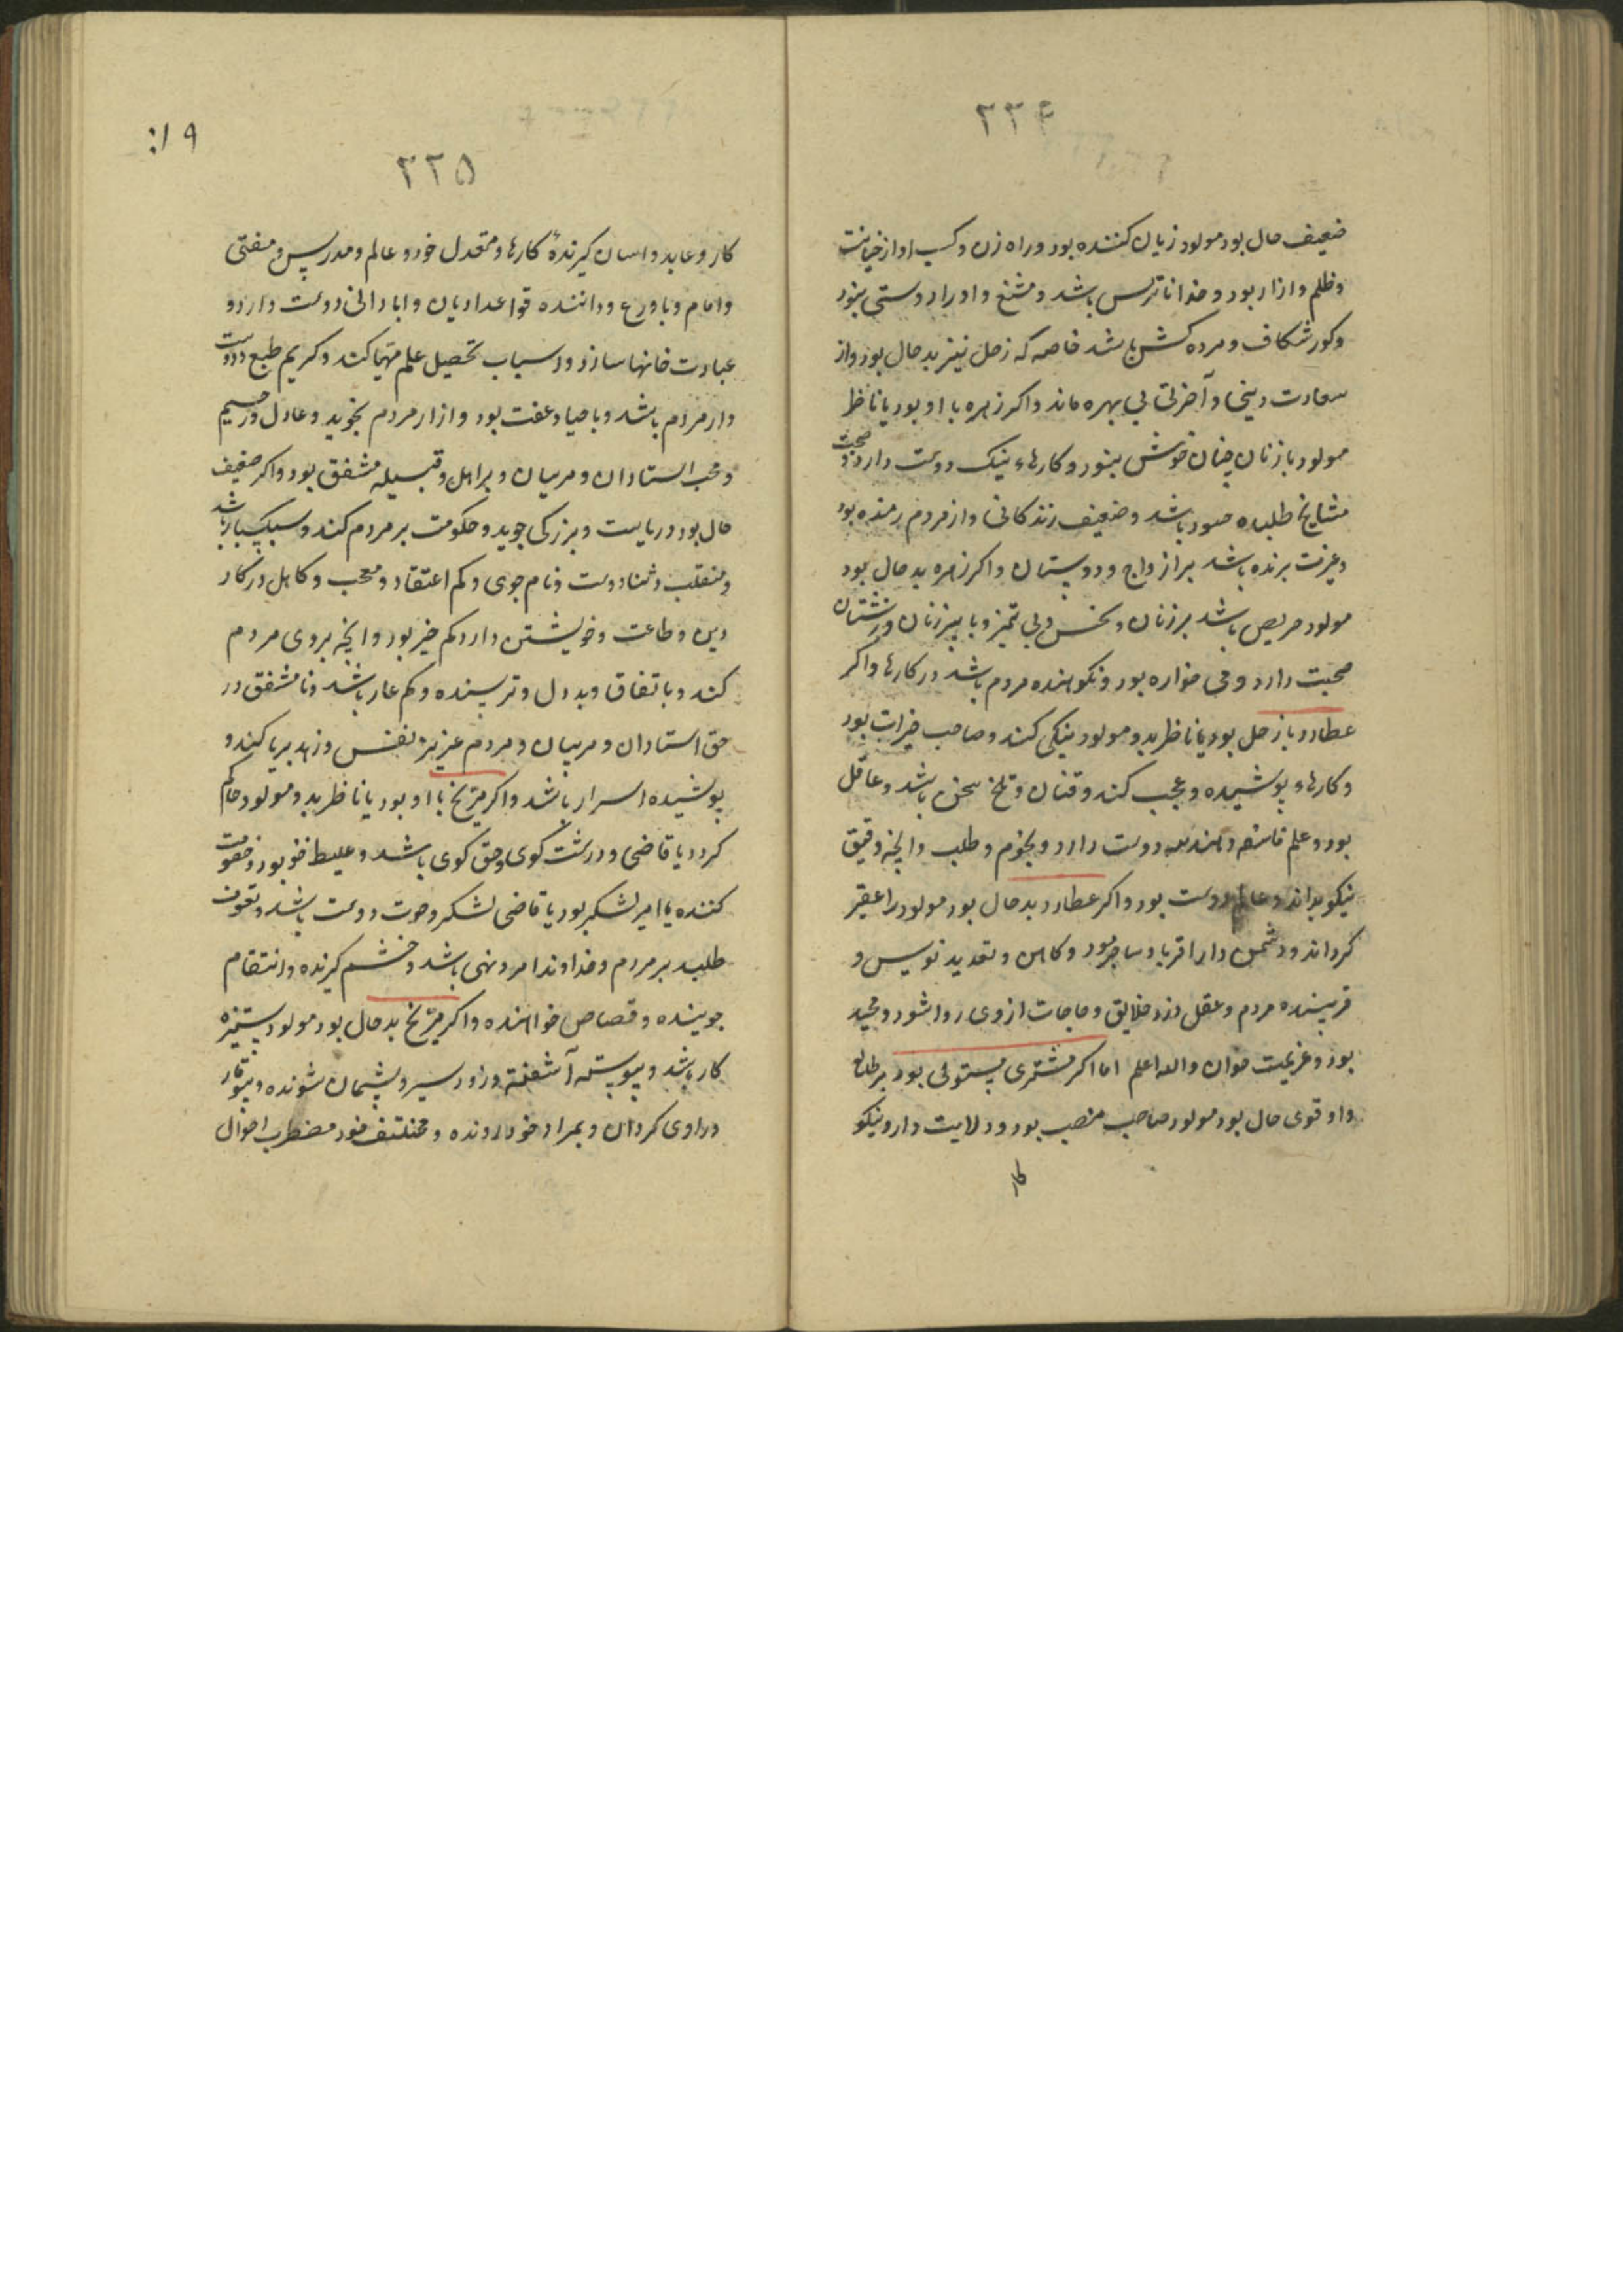 ۲۲۴
ضعیف حال بود مولود زیان کننده بود و راه زن و کسب او از خیانت
و ظلم و ازار بود و خدا ناترس باشد و او را دوستی نبود
و کور شکاف و مرده کش باشد خاصه که زحل نیز بد حال بود و از
سعادت دینی و آخرتی بی بهره ماند و اکر زهره با او بود یا ناظر
مولود با زنان چنان خوش نبود و کارهاء نیک دوست دارد و صحبت
مشایخ طلبد و حسود باشد و ضعیف زندکانی و از مردم رمنده بود
و غیرت برنده باشد بر ازواج و دوستان و اکر زهره بد حال بود
مولود حریص باشد بر زنان و نحس و بی تمیز و با پیر زنان و زشتان
صحبت دارد و می خواره بود و نکوهنده مردم باشد در کارها و اکر
عطارد با زحل بود یا ناظر بدو مولود نیکی کند و صاحب خیرات بود
و کارهاء پوشیده و عجب کند و فتان و تلخ سخن باشد و عاقل
بود و علم فلسفه و هندسه دوست دارد و نجوم و طلب و آنچه دقیق
نیکو بداند و عالم دوست بود و اکر عطارد بد حال بود مولود را عقیر
کرداند و دشمن دار اقربا و ساحر بود و کاهن و تعدید نویس و
فریبنده مردم و عقل دزد خلایق و حاجات از وی روا شود و مجید
بود و عزیمت خوان والله اعلم اما اکر مشتری مستولی بود بر طالع
و او قوی حال بود مولود صاحب منصب بود و ولایت دار و نیکو
کار
۱۹:
۲۲۵
کار و عابد و اسان کیرنده کارها و معتدل خو و عالم و مدرس و مفتی
و امام و با ورع و داننده قواعد ادیان و ابادانی دوست دارد و
عبادت خانها سازد و اسباب تحصیل علم مهیا کند و کریم طبع و دوست
دار مردم باشد و با حیا و عفت بود و ازار مردم نجوید و عادل و رحیم
و محب استادان و مربیان و بر اهل و قبیله مشفق بود و اکر ضعیف
حال بود ریاست و بزرکی جوید و حکومت بر مردم کند و سبکبار باشد
و متقلب و ثنا دوست و نام جوی و کم اعتقاد و معجب و کاهل در کار
دین و طاعت و خویشتن دار و کم خیر بود و آنچه بروی مردم
کند و با نفاق و بد دل و ترسنده و کم عار باشد و نا مشفق در
حق استادان و مربیان و مردم عزیز نفس و زهد بریا کند و
پوشیده اسرار باشد و اکر مریخ با او بود یا ناظر بدو مولود حاکم
کردد یا قاضی و درشت کوی و حق کوی باشد و غلیظ خو بود و خصومت
کننده یا امیر لشکر بود یا قاضی لشکر و حرب دوست باشد و تفوق
طلبد بر مردم و خداوند امر و نهی باشد و خشم کیرنده و انتقام
جوینده و قصاص خواهنده و اکر مریخ بد حال بود مولود ستیزه
کار باشد و پیوسته آشفته و زود سیر و پشیمان شونده و بیوقار
در اوی کردان و بمراد خود رونده و مختلف خو و مضطرب احوال